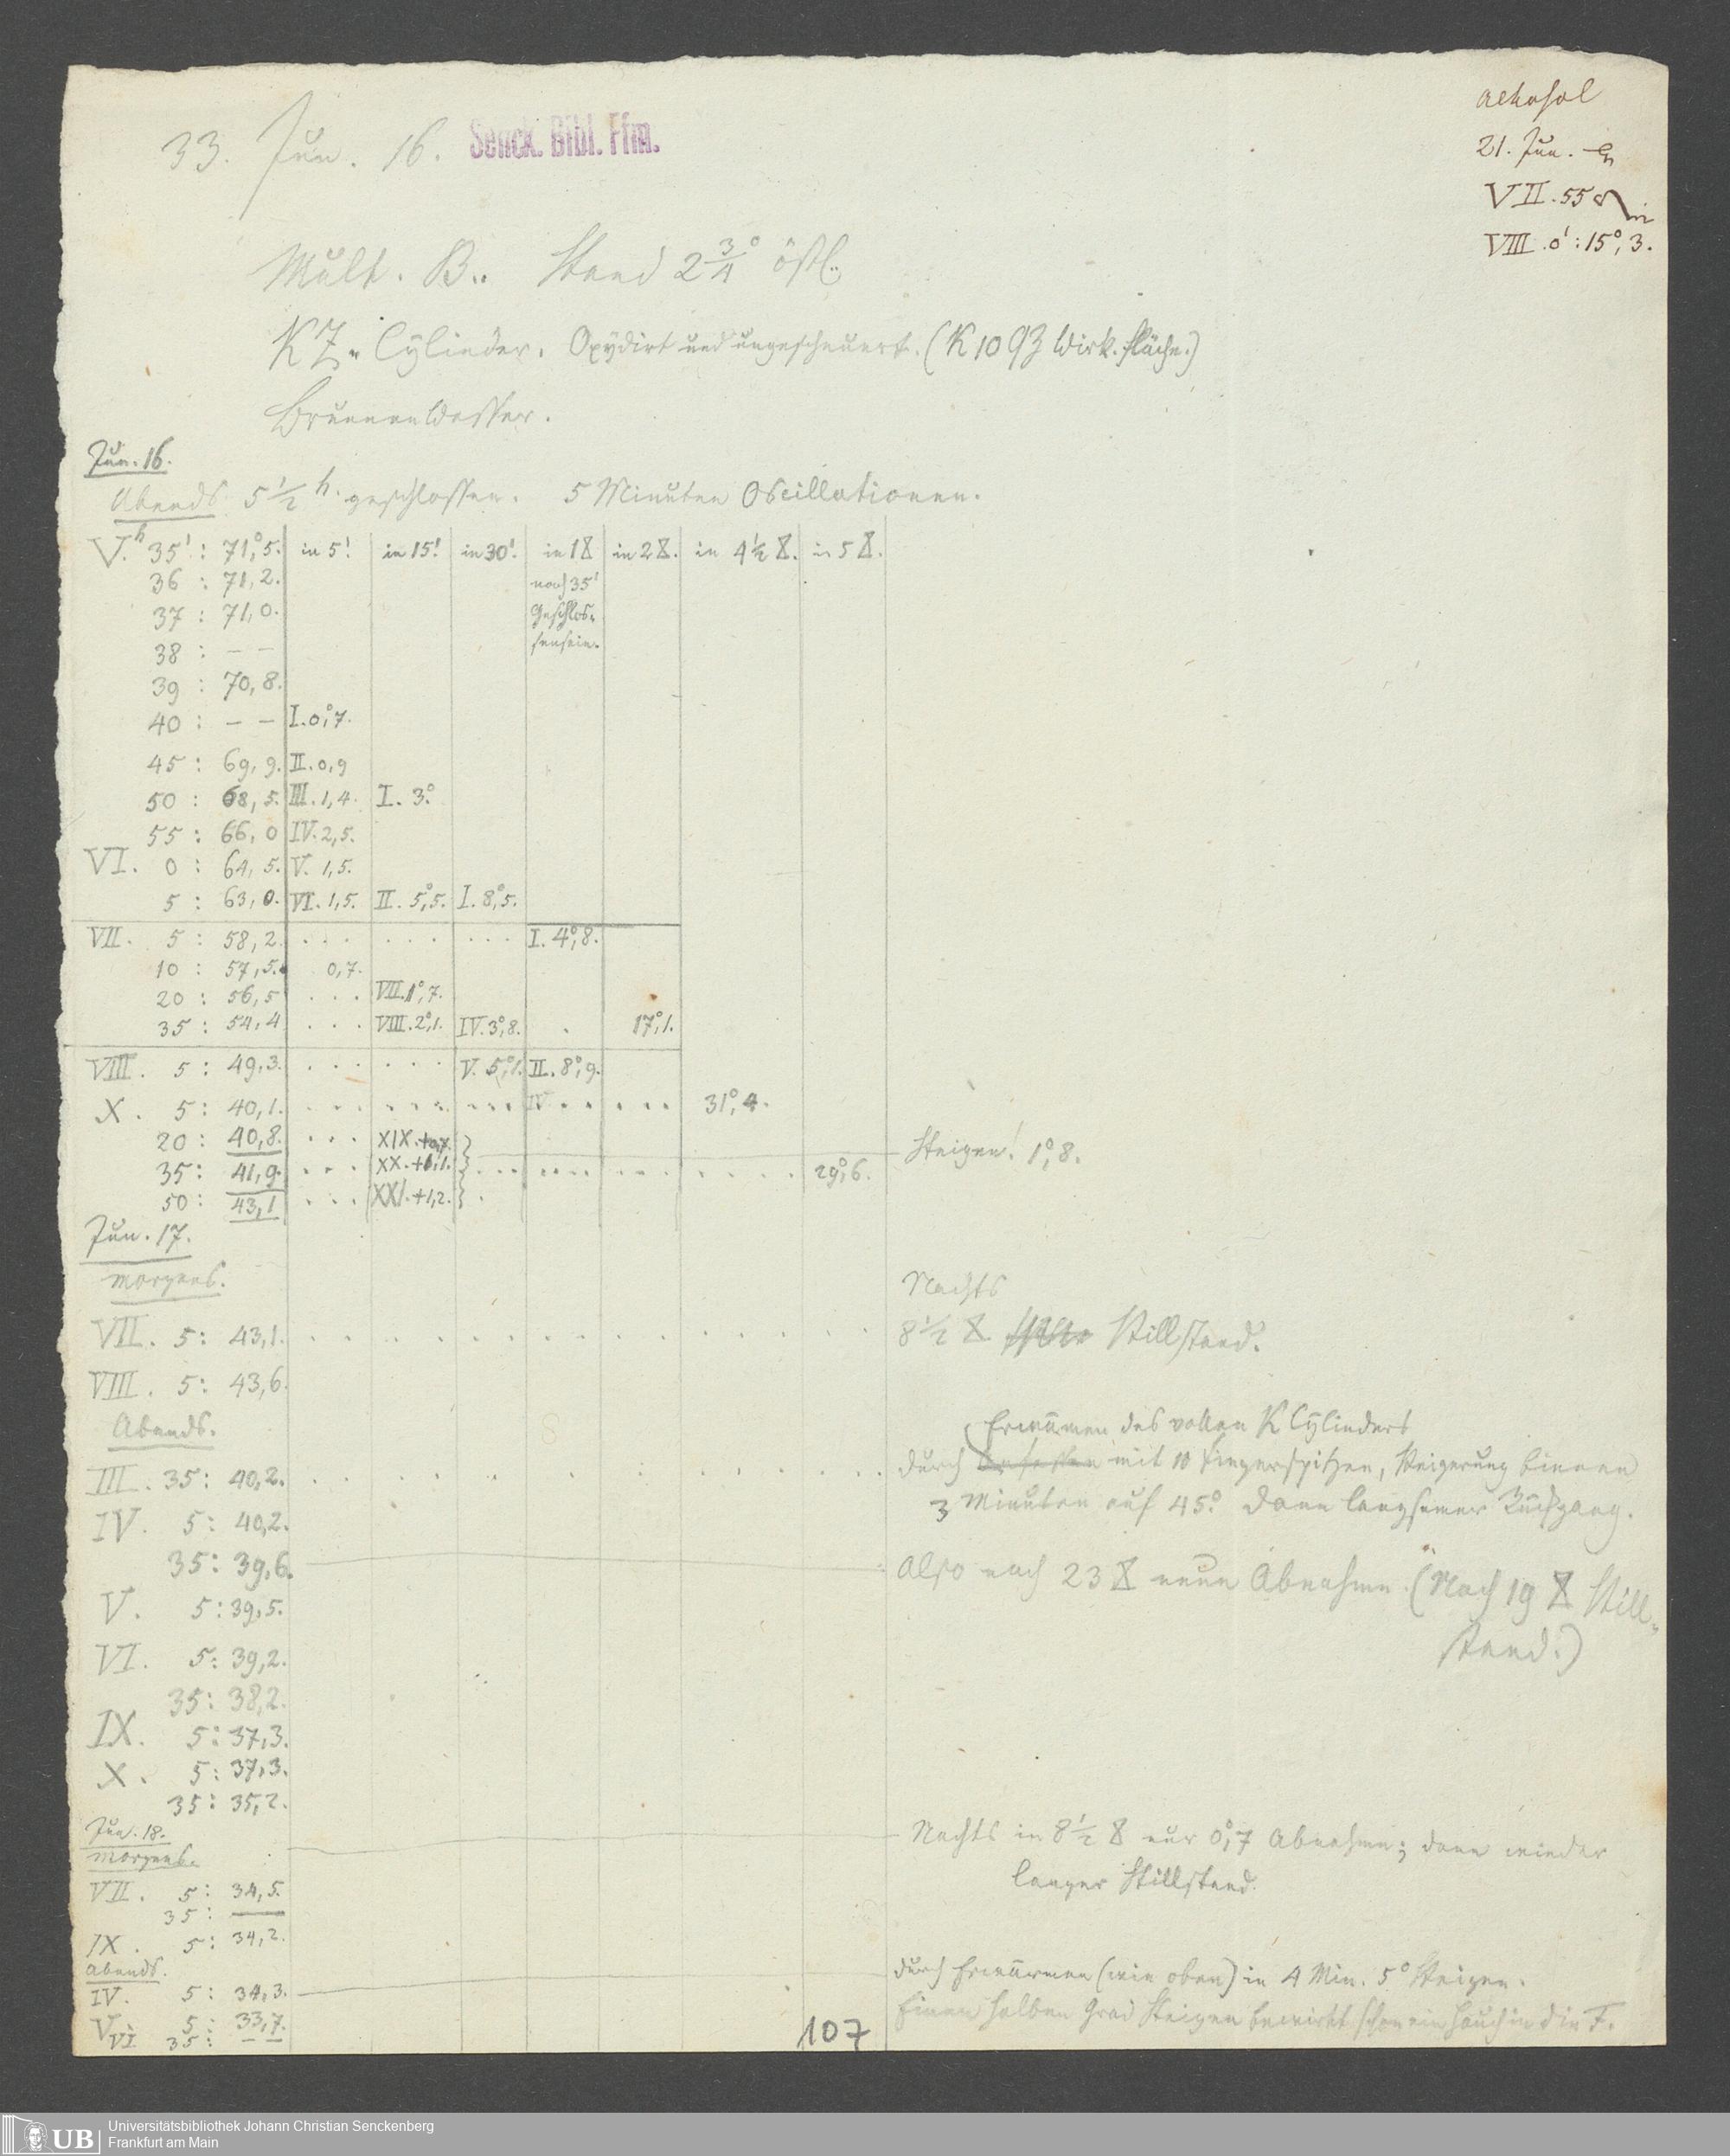 Alkohol
21. Jun.
VII. 55
VIII. 0' : 15°,3.
33. Jun. 16. Senck. Bibl. Ffm.
Mult. B.. Stand 2 3/4° östl.
KZ=Cylinder. Oxydirt und ungescheuert. (K 10 Wirk. fläche.)
Brunnenwasser.
Jun. 16.
Abends 5 1/2 h. geschlossen. 5 Minuten Oscillationen.
V.h 35' : 71,°5. in 5'. in 15'. in 30'. in 1 X in 2 X. in 4 1/2 X. in 5 X.
36 : 71,2. nach 35'
37 : 71,0. Geschlos=
38 : – – sensein.
39 : 70,8.
40 : – – I. 0,°7.
45 : 69,9. II. 0,9
50 : 68,5. III. 1,4. I. 3°.
55 : 66,0 IV. 2,5.
VI. 0 : 64,5. V. 1,5.
5 : 63,0. VI. 1,5. II. 5,°5. I. 8,°5.
VII. 5 : 58,2. . . . . . . . . . I. 4,°8.
10 : 57,5. 0,7.
20 : 56,5 . . . VII. 1°,7.
35 : 54,4 . . . VIII. 2,°1. IV. 3,°8. . 17,°1.
VIII. 5 : 49,3. . . . . . . V. 5,°1. II. 8,°9.
X. 5 : 40,1. . . . . . . . . . . IV . . . . . . 31,°4.
20 : 40,8. . . . XIX. +0,7. } Steigen! 1,°8.
35 : 41,9. . . . XX. +1,1. } . . . . . . . . . . 29,°6.
50 : 43,1 . . . XXI. +1,2. } .
Jun. 17.
morgens. Nachts
VII. 5 : 43,1. . . . . . . . . . . . . 8 1/2 X. Stillstand.
VIII. 5 : 43,6.
Abends. Erwärmen des vollen K Cylinders
III. 35 : 40,2. . . . . . . . . . . . . durch mit 10 Fingerspitzen, Steigerung binnen
3 Minuten auf 45°. Dann langsamer Rückgang.
IV. 5 : 40,2.
35 : 39,6. Also nach 23 X neue Abnahme. (Nach 19 X Still=
V. 5 : 39,5. stand.)
VI. 5 : 39,2.
35 : 38,2.
IX. 5 : 37,3.
X. 5 : 37,3.
35 : 35,2.
Jun. 18. Nachts in 8 1/2 X nur 0,°7 Abnahme; dann wieder
morgens. langer Stillstand.
VII. 5 : 34,5.
35 : —
IX. 5 : 34,2.
Abends. durch Erwärmen (wie oben) in 4 Min. 5° Steigen.
IV. 5 : 34,3.
V. 5 : 33,7. Einen halben Grad Steigen bewirkt schon ein Hauch in die F.
VI 35 : – –
107
UB Universitätsbibliothek Johann Christian Senckenberg
Frankfurt am Main